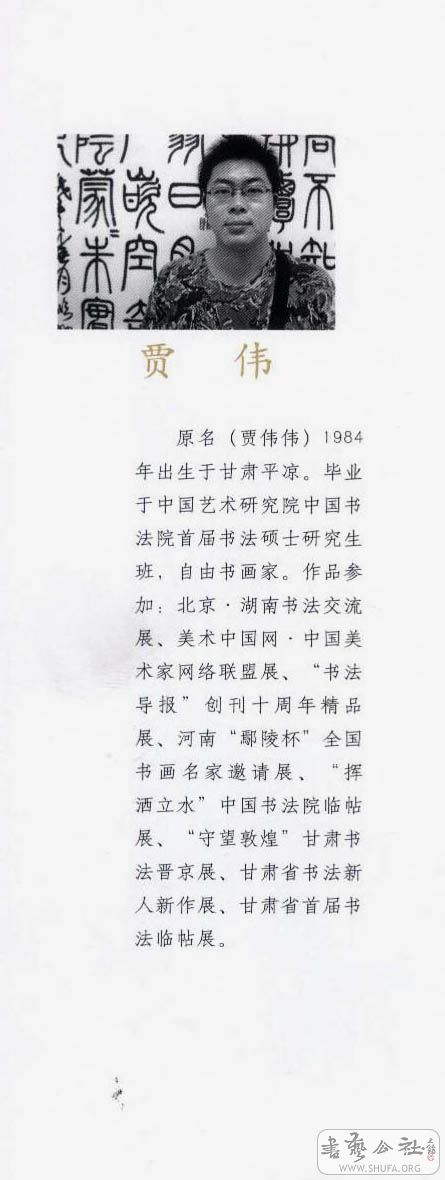 贾 伟
原名（贾伟伟）1984
年出生于甘肃平凉。毕业
于中国艺术研究院中国书
法院首届书法硕士研究生
班，自由书画家。作品参
加：北京·湖南书法交流
展、美术中国网·中国美
术家网络联盟展、“书法
导报”创刊十周年精品
展、河南“鄢陵杯”全国
书画名家邀请展、“挥
洒立水”中国书法院临帖
展、“守望敦煌”甘肃书
法晋京展、甘肃省书法新
人新作展、甘肃省首届书
法临帖展。
书艺公社
WWW.SHUFA.ORG